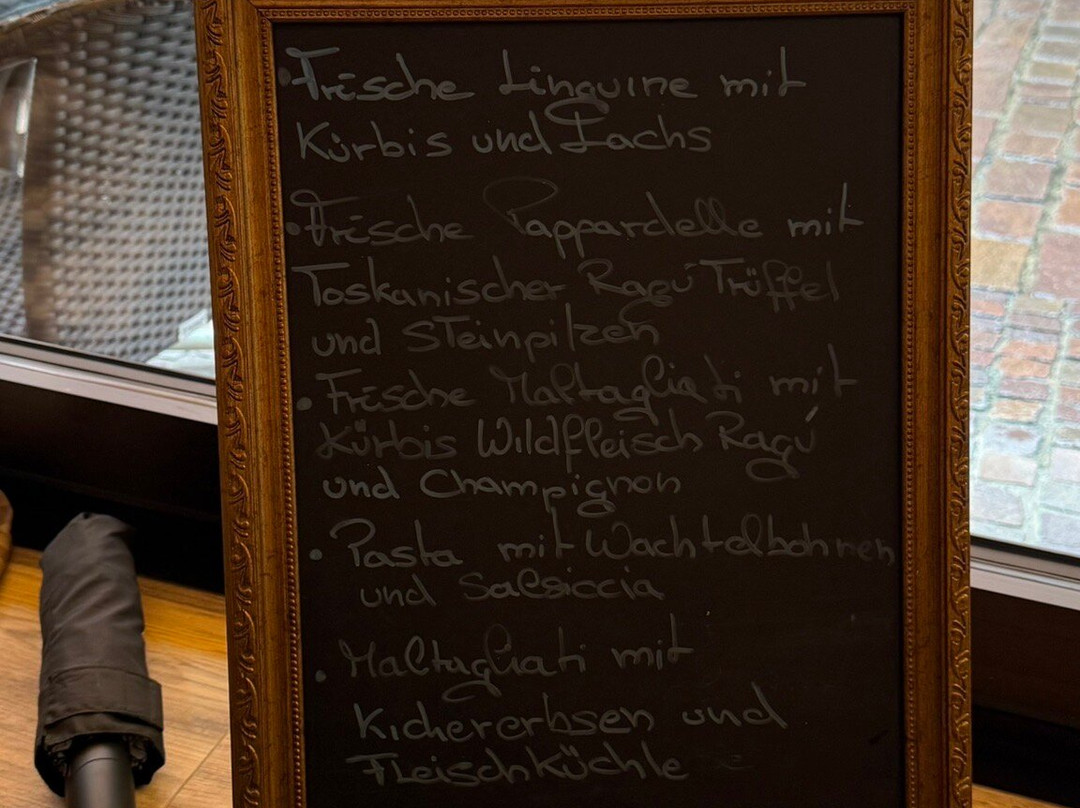 • Frische Linguine mit
Kürbis und Lachs
• Frische Pappardelle mit
Toskanischer Ragú Trüffel
und Steinpilzen
• Frische Maltagliati mit
Kürbis Wildfleisch Ragú
und Champignon
• Pasta mit Wachtelbohnen
und Salsiccia
• Maltagliati mit
Kichererbsen und
Fleischküchle